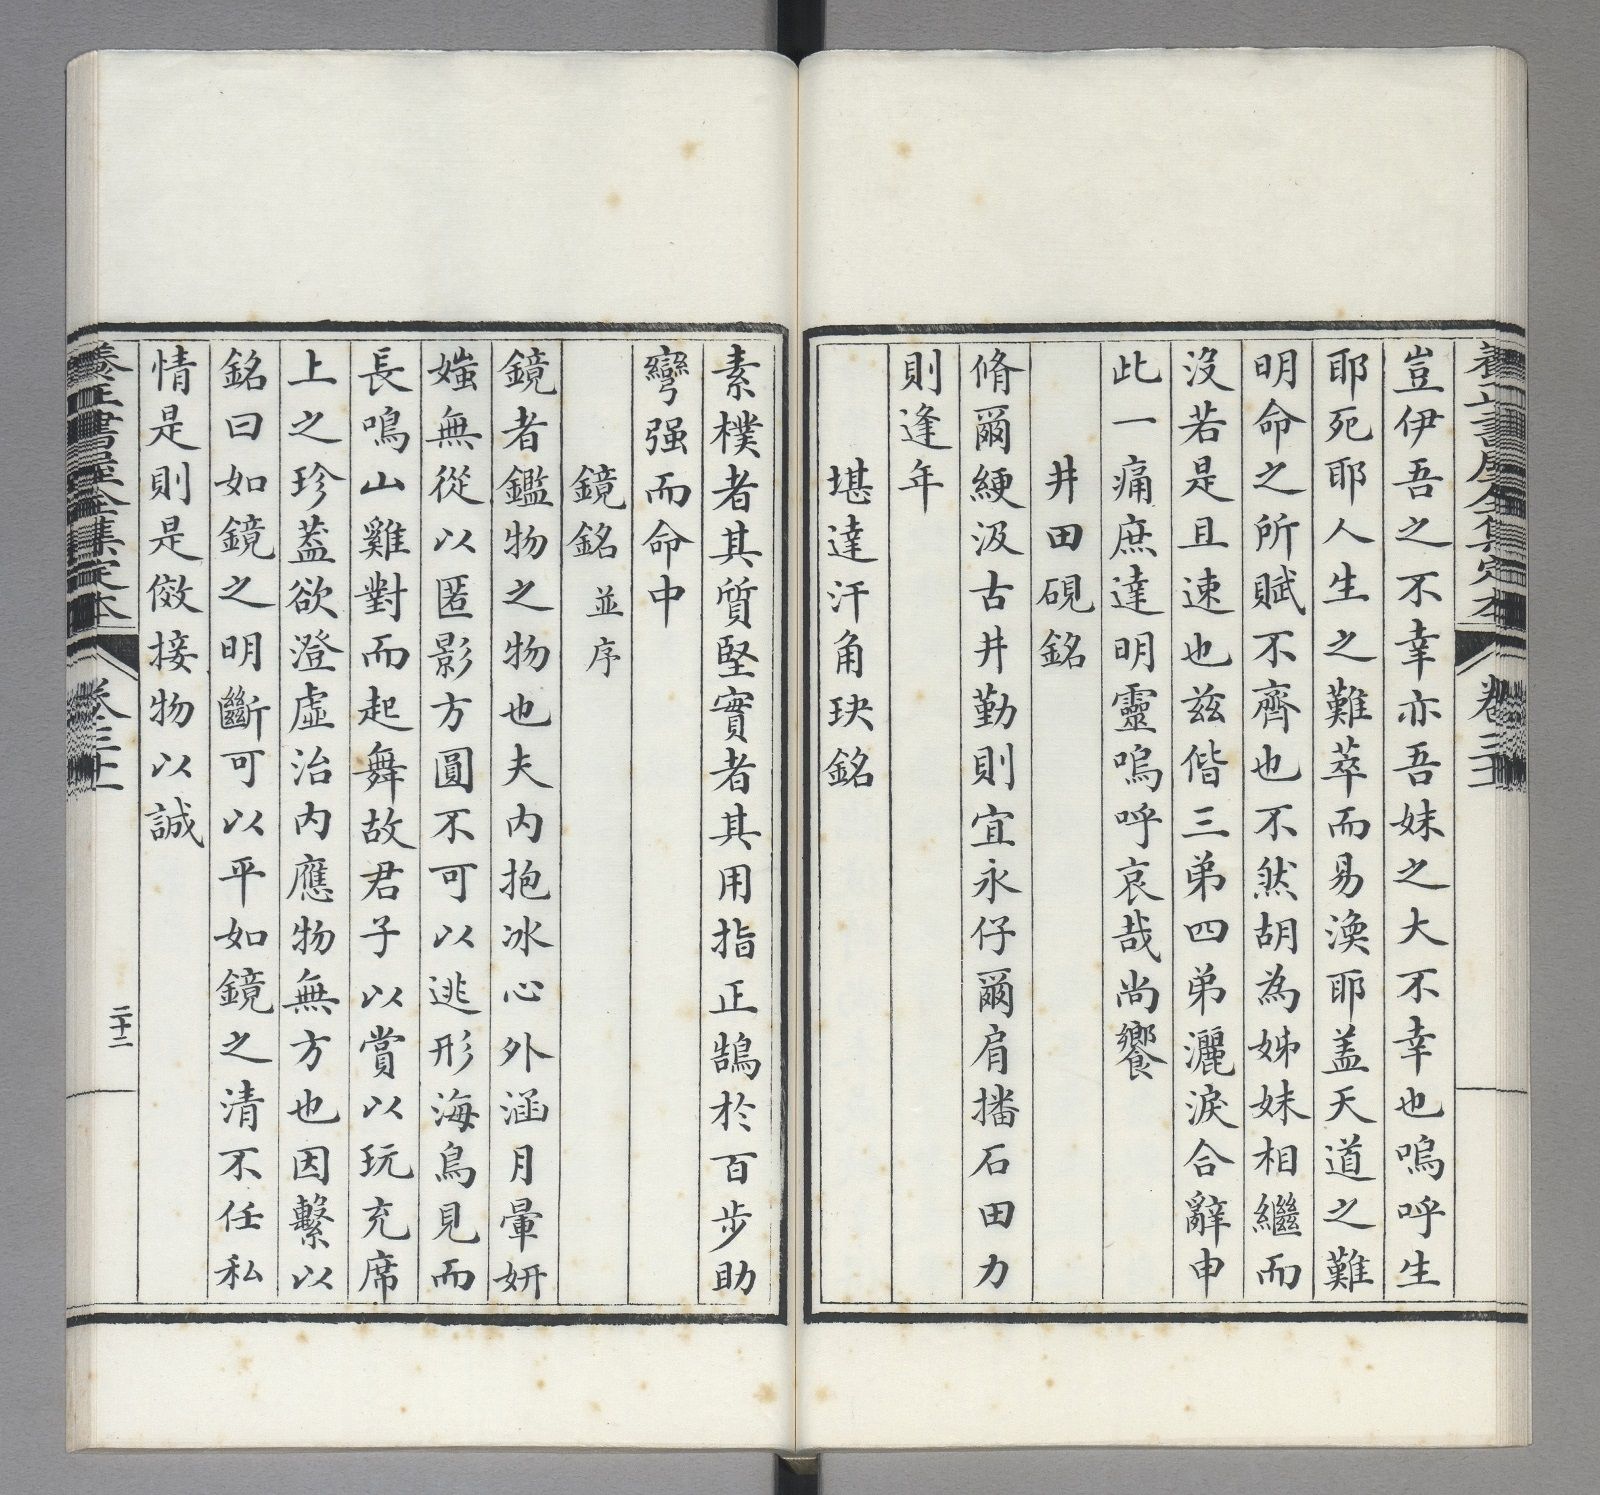 豈伊吾之不幸亦吾妹之大不幸也嗚呼生
耶死耶人生之難萃而易渙耶盖天道之難
明命之所賦不齊也不然胡為姊妹相繼而
沒若是且速也兹偕三弟四弟灑淚合辭申
此一痛庶達明靈嗚呼哀哉尚饗
井田硯銘
脩爾綆汲古井勤則宜永仔爾肩播石田力
則逢年
堪達汗角玦銘
素樸者其質堅實者其用指正鵠於百步助
彎强而命中
鏡銘 並序
鏡者鑑物之物也夫内抱冰心外涵月暈妍
媸無從以匿影方圓不可以逃形海鳥見而
長鳴山雞對而起舞故君子以賞以玩充席
上之珍葢欲澄虛治内應物無方也因繫以
銘曰如鏡之明斷可以平如鏡之清不任私
情是則是傚接物以誠
養正書屋全集定本 卷三十二